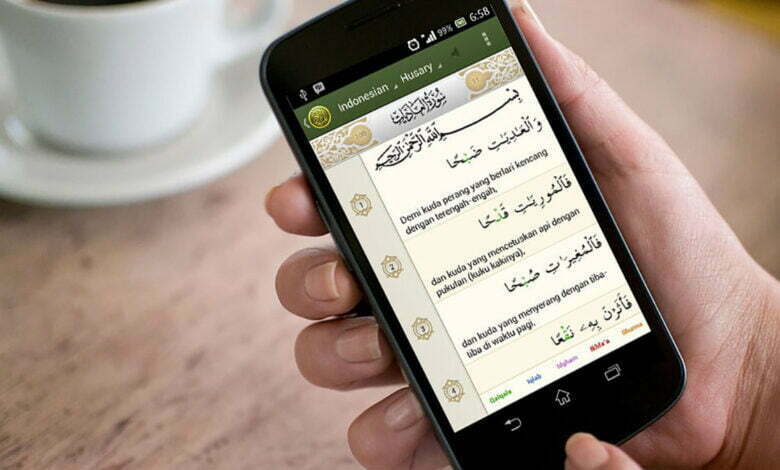 99% 6:58
Indonesian Husary
سُورَةُ العَادِيَات
بِسْمِ اللَّهِ الرَّحْمَٰنِ الرَّحِيمِ
وَالْعَٰدِيَٰتِ ضَبْحًا
1
Demi kuda perang yang berlari kencang
dengan terengah-engah,
فَالْمُورِيَٰتِ قَدْحًا
2
dan kuda yang mencetuskan api dengan
pukulan (kuku kakinya),
فَالْمُغِيرَٰتِ صُبْحًا
3
dan kuda yang menyerang dengan tiba-
tiba di waktu pagi,
فَأَثَرْنَ بِهِۦ نَقْعًا
4
Qalqala Iqlab Idgham Ikhfa'a Ghunna